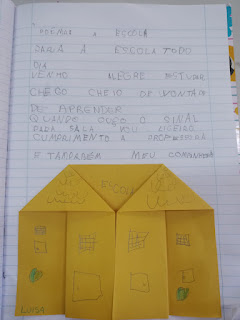 POEMA A ESCOLA
PARA A ESCOLA TODO
DIA
VENHO ALEGRE ESTUDAR
CHEGO CHEIO DE VONTADE
DE APRENDER
QUANDO OUÇO O SINAL
PARA SALA VOU LIGEIRO
CUMPRIMENTO A PROFESSORA
E TAMBÉM MEU COMPANHEIRO
ESCOLA
LUISA